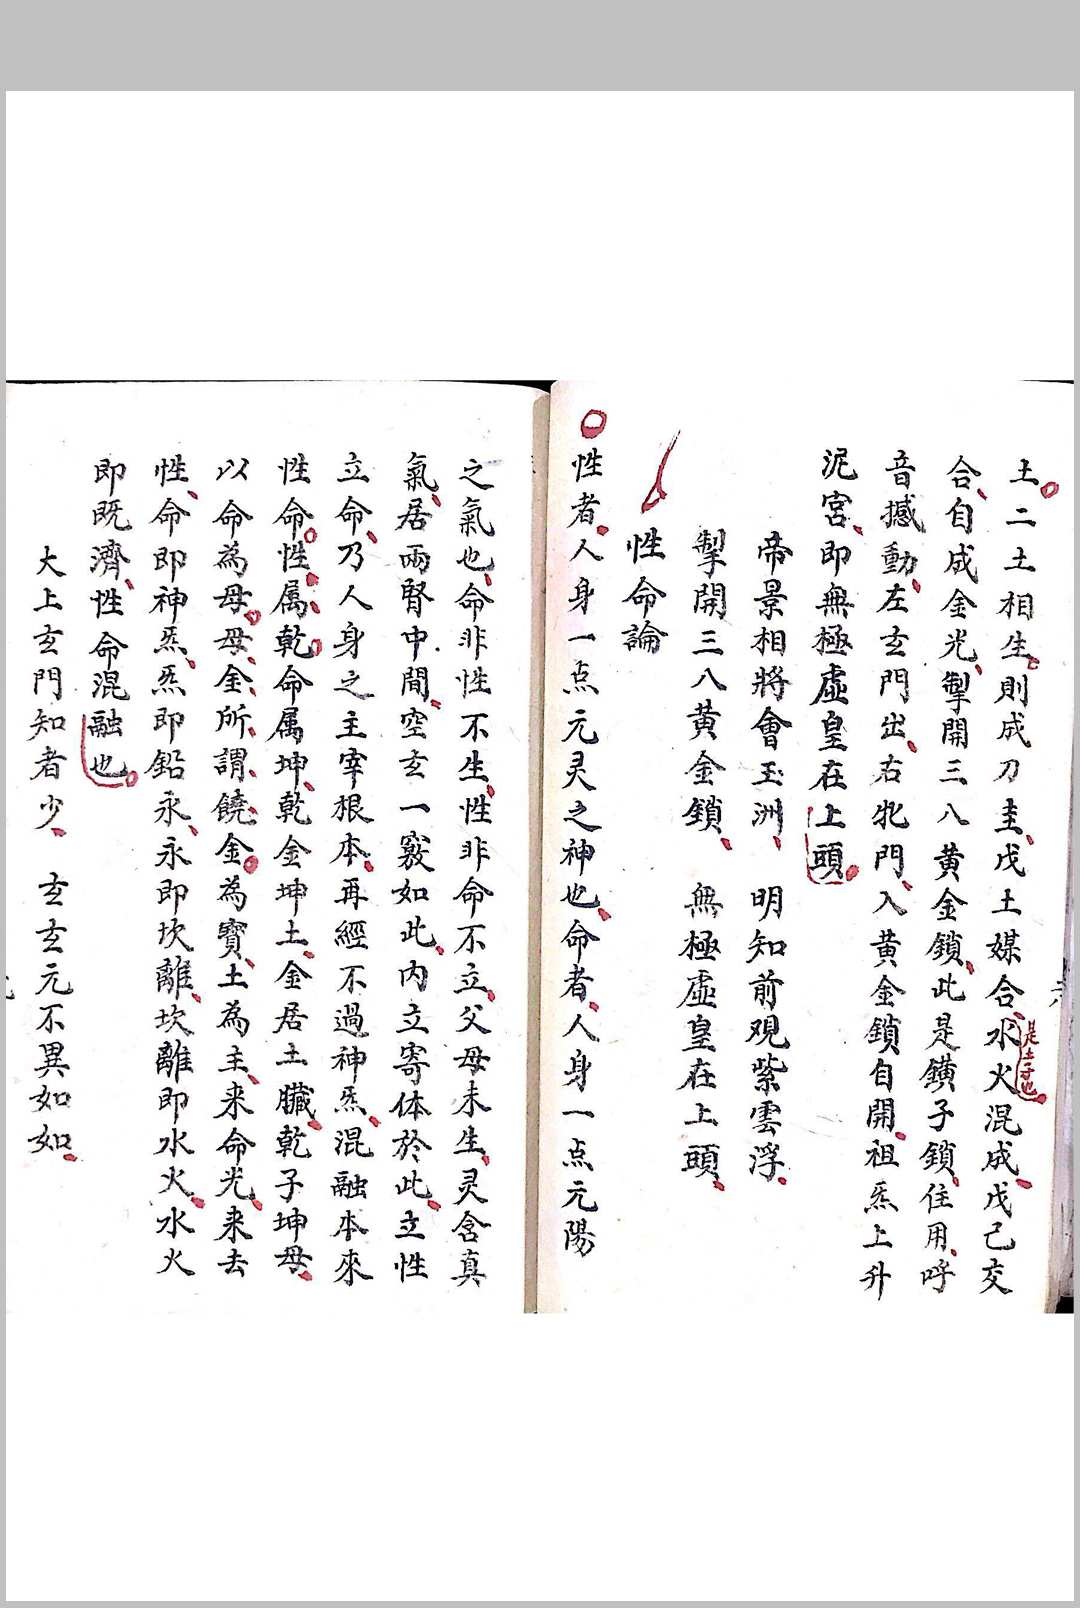 土二土相生則成刀圭戊土媒合水火混成戊己交
是土子也
合自成金光掣開三八黄金鎖此是鐄子鎖住用呼
音撼動左玄門出右牝門入黄金鎖自開祖炁上升
泥宮即無極虛皇在上頭
帝景相將會玉洲 明知前观紫雲浮
掣開三八黄金鎖 無極虛皇在上頭
性命論
性者人身一点元灵之神也命者人身一点元陽
之氣也命非性不生性非命不立父母未生灵含真
氣居兩腎中間空玄一竅如此内立寄体於此立性
立命乃人身之主宰根本再經不過神炁混融本來
性命性属乾命属坤乾金坤土金居土臟乾子坤母
以命為母母金所謂饒金為寳土為主来命光来去
性命即神炁炁即鉛永永即坎離坎離即水火水火
即既濟性命混融也
大上玄門知者少 玄玄元不異如如